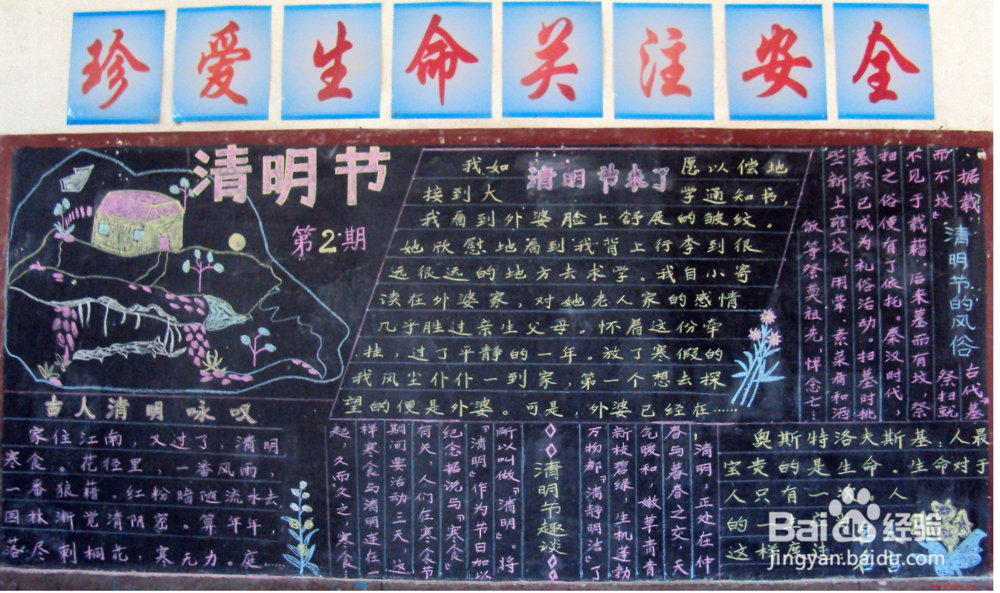 珍爱生命关注安全
清明节
第2期
清明节来了
我如 愿以偿地
接到大 学通知书，
我看到外婆脸上舒展的皱纹。
她欣慰地看到我背上行李到很
远很远的地方去求学。我自小寄
读在外婆家，对她老人家的感情
几乎胜过亲生父母。怀着这份牵
挂，过了平静的一年。放了寒假的
我风尘仆仆一到家，第一个想去探
望的便是外婆。可是，外婆已经在……
清明节的风俗
据载，古代“墓
而不坟” 祭扫就
不见于载籍。后来墓而有坟，祭
扫之俗便有了依托。秦汉时代，
墓祭已成为礼俗活动。扫墓时挑
些新土壅坟；用荤、素菜肴和酒
饭等祭奠祖先，悼念亡……
古人清明咏叹
家住江南，又过了，清明
寒食。花径里，一番风雨，
一番狼藉。红粉暗随流水去
园林渐觉清阴密。算年年，
落尽刺桐花，寒无力。庭……
清明节趣谈
清明，正处在仲
春与暮春之交，天
气暖和，嫩草青青
新枝碧绿，生机蓬勃
万物都“清静明洁”了
所以叫做“清明”。将
“清明”作为节日加以
纪念据说与“寒食”
有关，人们在寒食节
期间要活动三天，这
样寒食与清明连在一
起，久而久之，寒食……
奥斯特洛夫斯基：人最
宝贵的是生命。生命对于
人只有一次，人
的一
这样度过
Baidu经验
jingyan.baidu.com